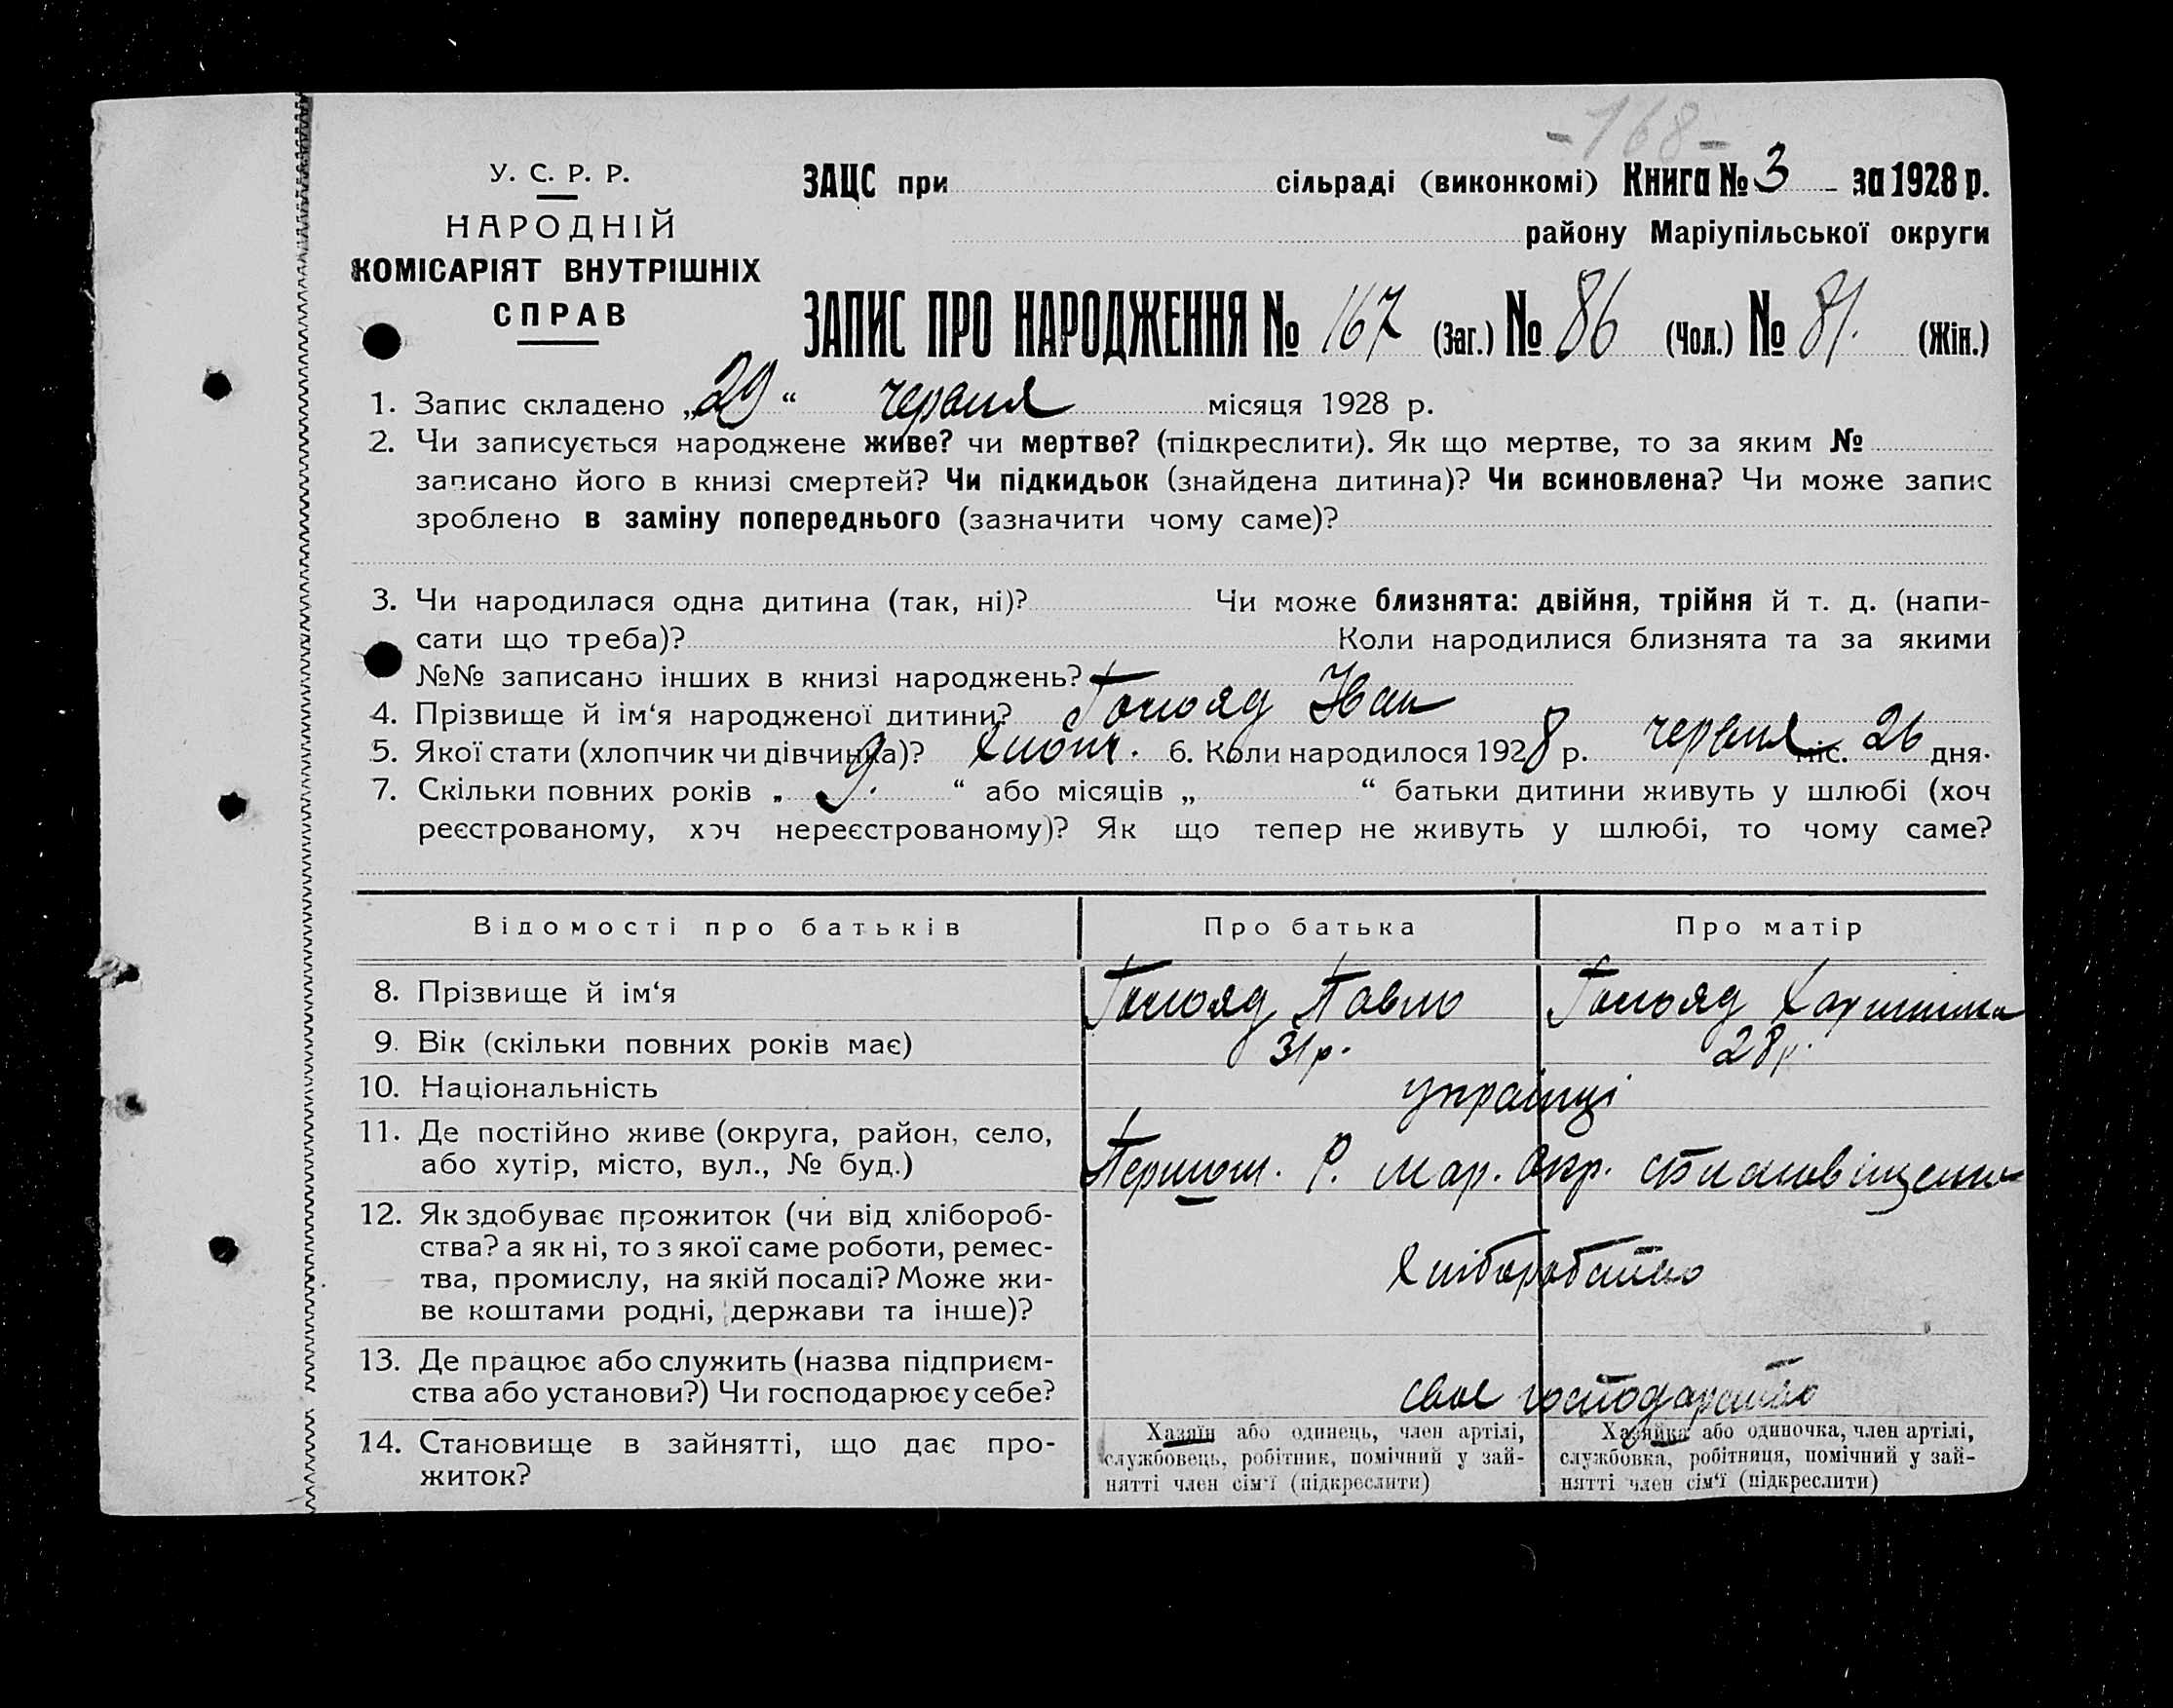 -168-
У. С. Р. Р.
НАРОДНІЙ
КОМІСАРІЯТ ВНУТРІШНІХ
СПРАВ
ЗАЦС при сільраді (виконкомі) Книга № 3 за 1928 р.
району Маріупільської округи
ЗАПИС ПРО НАРОДЖЕННЯ № 167 (Заг.) № 86 (Чол.) № 81. (Жін.)
1. Запис складено „29“ червня місяця 1928 р.
2. Чи записується народжене живе? чи мертве? (підкреслити). Як що мертве, то за яким №
записано його в книзі смертей? Чи підкидьок (знайдена дитина)? Чи всиновлена? Чи може запис
зроблено в заміну попереднього (зазначити чому саме)?
3. Чи народилася одна дитина (так, ні)? Чи може близнята: двійня, трійня й т. д. (напи-
сати що треба)? Коли народилися близнята та за якими
№№ записано інших в книзі народжень?
4. Прізвище й ім‘я народженої дитини? Гольояд Іван
5. Якої стати (хлопчик чи дівчинка)? хлопч. 6. Коли народилося 1928 р. червня міс. 26 дня.
7. Скільки повних років „ 9. “ або місяців „ “ батьки дитини живуть у шлюбі (хоч
реєстрованому, хоч нереєстрованому)? Як що тепер не живуть у шлюбі, то чому саме?
Відомості про батьків Про батька Про матір
8. Прізвище й ім‘я Гольояд Павло Гольояд
9. Вік (скільки повних років має) 31 р. 28 р.
10. Національність українці
11. Де постійно живе (округа, район, село,
або хутір, місто, вул., № буд.) Р. Мар. Окр.
12. Як здобуває прожиток (чи від хлібороб-
ства? а як ні, то з якої саме роботи, ремес-
тва, промислу, на якій посаді? Може жи-
ве коштами родні, держави та інше)? Хліборобство
13. Де працює або служить (назва підприєм-
ства або установи?) Чи господарює у себе? своє господарство
14. Становище в зайнятті, що дає про-
житок?
Хазяїн або одинець, член артілі,
службовець, робітник, помічний у зай-
нятті член сім‘ї (підкреслити)
Хазяйка або одиночка, член артілі,
службовка, робітниця, помічний у зай-
нятті член сім‘ї (підкреслити)